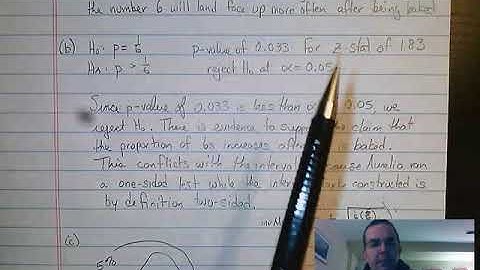 the number 6 will land face up more often after being baked
(b) H₀: p = 1/6 p-value of 0.033 for z-stat of 1.83
Hₐ: p > 1/6 reject H₀ at α = 0.05
Since p-value of 0.033 is less than 0.05, we
reject H₀. There is evidence to support the claim that
the proportion of 6s increases after is baked.
This conflicts with the interval because Aurelio ran
a one-sided test while the interval constructed is
by definition two-sided.
(c)
5%